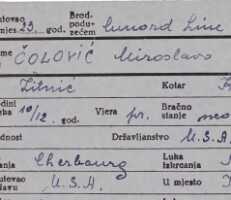 utovao
mjes. 23. god. Brod. podu- zećem Cunard Line
me ČOLOVIĆ Miroslavo
Žitnić Kotar
dini ska 10/12. god. Vjera pr. Bračno stanje neo
dnost Državljanstvo U.S.A.
anja Cherbourg Luka iskrcanja
utovao lavu U.S.A. U mjesto